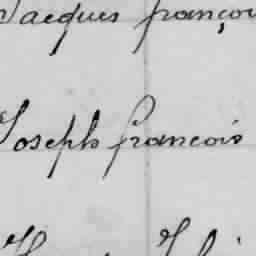 Jacques françoi
Joseph francois